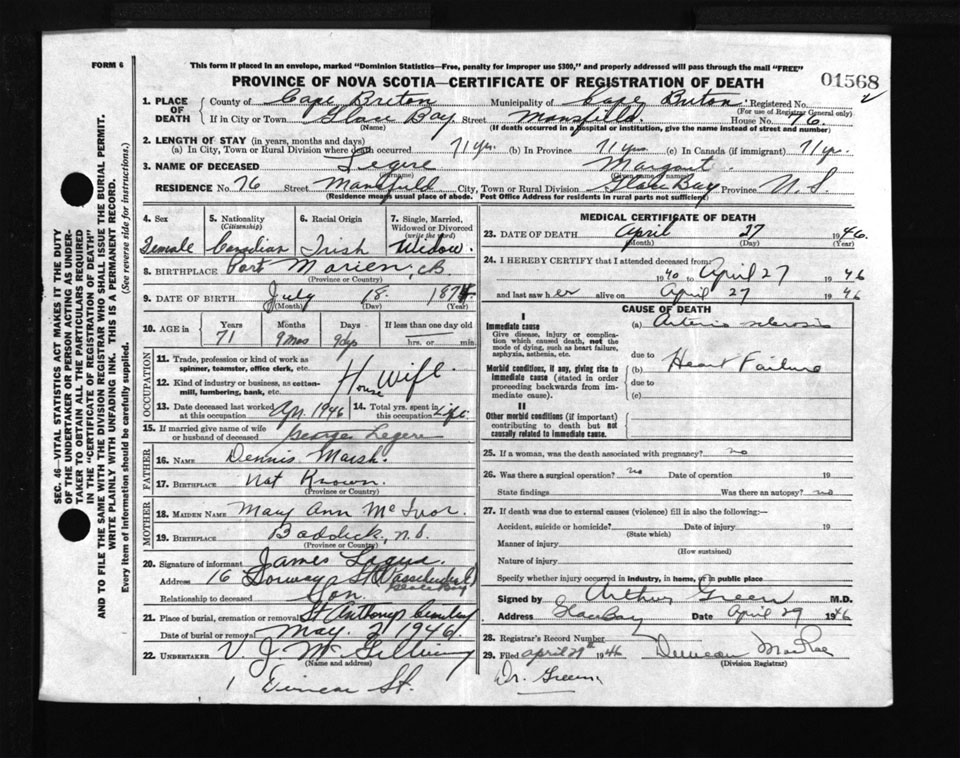 FORM 6
This form if placed in an envelope, marked "Dominion Statistics—Free, penalty for improper use $300," and properly addressed will pass through the mail "FREE"
PROVINCE OF NOVA SCOTIA—CERTIFICATE OF REGISTRATION OF DEATH
01568
1. PLACE OF DEATH County of Cape Breton Municipality of Cape Breton Registered No.
(For use of Registrar General only)
If in City or Town Glace Bay Street Mansfield House No. 76
(Name) (If death occurred in a hospital or institution, give the name instead of street and number)
2. LENGTH OF STAY (in years, months and days)
(a) In City, Town or Rural Division where death occurred 71 yrs. (b) In Province 71 yrs (c) In Canada (if immigrant) 71 yrs.
3. NAME OF DECEASED Legere Margaret
(Surname) (Given names)
RESIDENCE No. 76 Street Mansfield City, Town or Rural Division Glace Bay Province N. S.
(Residence means usual place of abode. Post Office Address for residents in rural parts not sufficient)
4. Sex Female
5. Nationality (Citizenship) Canadian
6. Racial Origin Irish
7. Single, Married, Widowed or Divorced (write the word) Widow
8. BIRTHPLACE Port Morien, CB.
(Province or Country)
9. DATE OF BIRTH July 18. 1874
(Month) (Day) (Year)
10. AGE in Years 71 Months 9 mos Days 9 dys If less than one day old
hrs. or min.
OCCUPATION
11. Trade, profession or kind of work as spinner, teamster, office clerk, etc.
12. Kind of industry or business, as cotton-mill, lumbering, bank, etc.
House Wife.
13. Date deceased last worked at this occupation Apr. 1946
14. Total yrs. spent in this occupation Life
15. If married give name of wife or husband of deceased George Legere
FATHER
16. NAME Dennis Marsh.
17. BIRTHPLACE Not Known.
(Province or Country)
MOTHER
18. MAIDEN NAME Mary Ann McIvor.
19. BIRTHPLACE Baddeck, N.S.
(Province or Country)
20. Signature of informant James
Address 16 St Glace Bay
Relationship to deceased Son.
21. Place of burial, cremation or removal St Anthonys Cemetery
Date of burial or removal May. 1946.
22. UNDERTAKER V. J. McGillivray
(Name and address)
St.
MEDICAL CERTIFICATE OF DEATH
23. DATE OF DEATH April 27 1946.
(Month) (Day) (Year)
24. I HEREBY CERTIFY that I attended deceased from:
1940 to April 27 1946
and last saw her alive on April 27 1946
CAUSE OF DEATH
I
Immediate cause
Give disease, injury or complication which caused death, not the mode of dying, such as heart failure, asphyxia, asthenia, etc.
(a) Arterio sclerosis
due to
Morbid conditions, if any, giving rise to immediate cause (stated in order proceeding backwards from immediate cause).
(b) Heart Failure
due to
(c)
II
Other morbid conditions (if important) contributing to death but not causally related to immediate cause.
25. If a woman, was the death associated with pregnancy? no
26. Was there a surgical operation? no Date of operation 19
State findings Was there an autopsy? no
27. If death was due to external causes (violence) fill in also the following:—
Accident, suicide or homicide? Date of injury 19
(State which)
Manner of injury
(How sustained)
Nature of injury
Specify whether injury occurred in industry, in home, or in public place
Signed by Arthur Green M.D.
Address Glace Bay Date April 29 1946
28. Registrar's Record Number
29. Filed April 29th 1946 Duncan MacRae
(Division Registrar)
Dr. Green
SEC. 46—VITAL STATISTICS ACT MAKES IT THE DUTY
OF THE UNDERTAKER OR PERSON ACTING AS UNDER-
TAKER TO OBTAIN ALL THE PARTICULARS REQUIRED
IN THE "CERTIFICATE OF REGISTRATION OF DEATH"
AND TO FILE THE SAME WITH THE DIVISION REGISTRAR WHO SHALL ISSUE THE BURIAL PERMIT.
WRITE PLAINLY WITH UNFADING INK. THIS IS A PERMANENT RECORD.
Every item of information should be carefully supplied. (See reverse side for instructions.)